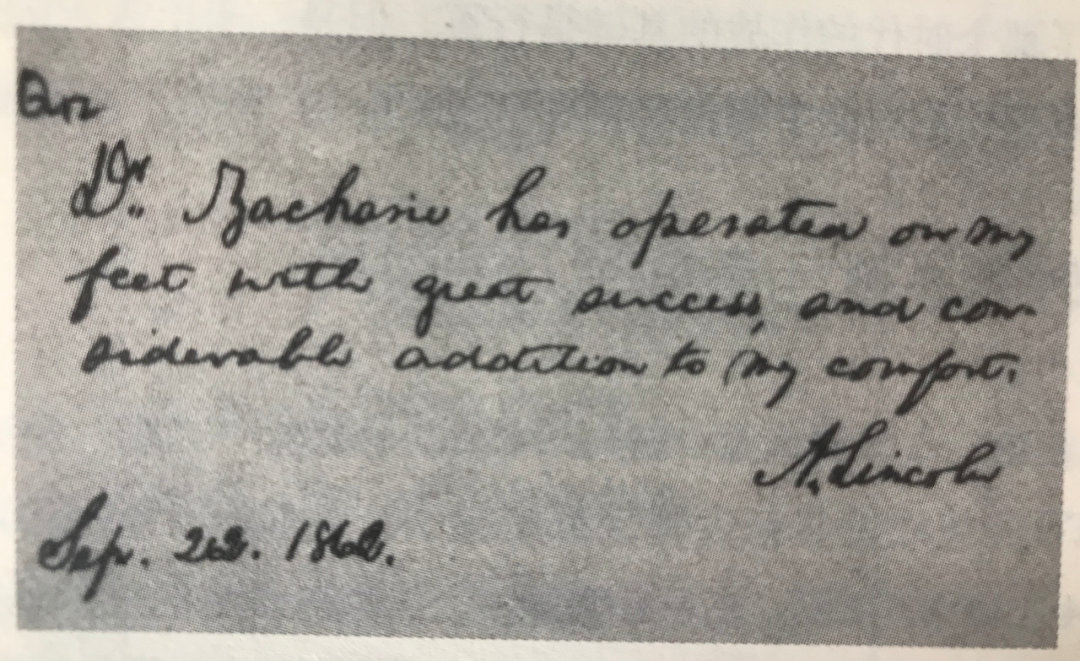 Dr. Zacharie has operated on my
feet with great success, and con-
siderable addition to my comfort.
A. Lincoln
Sep. 1862.